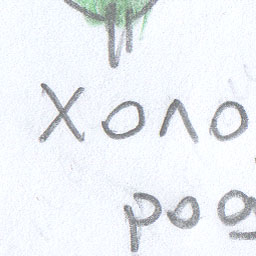 Холо
роя